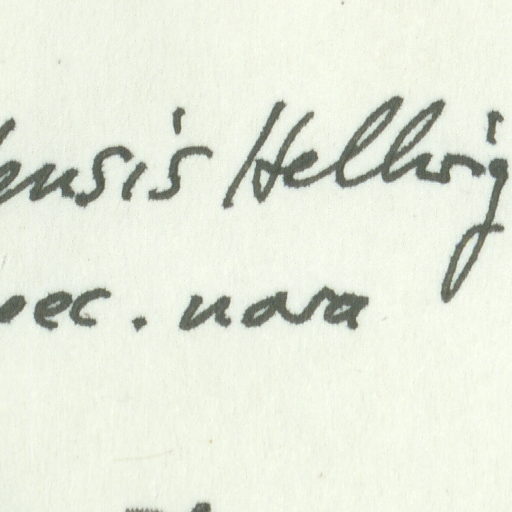 ensis Hellwig
pec. nova